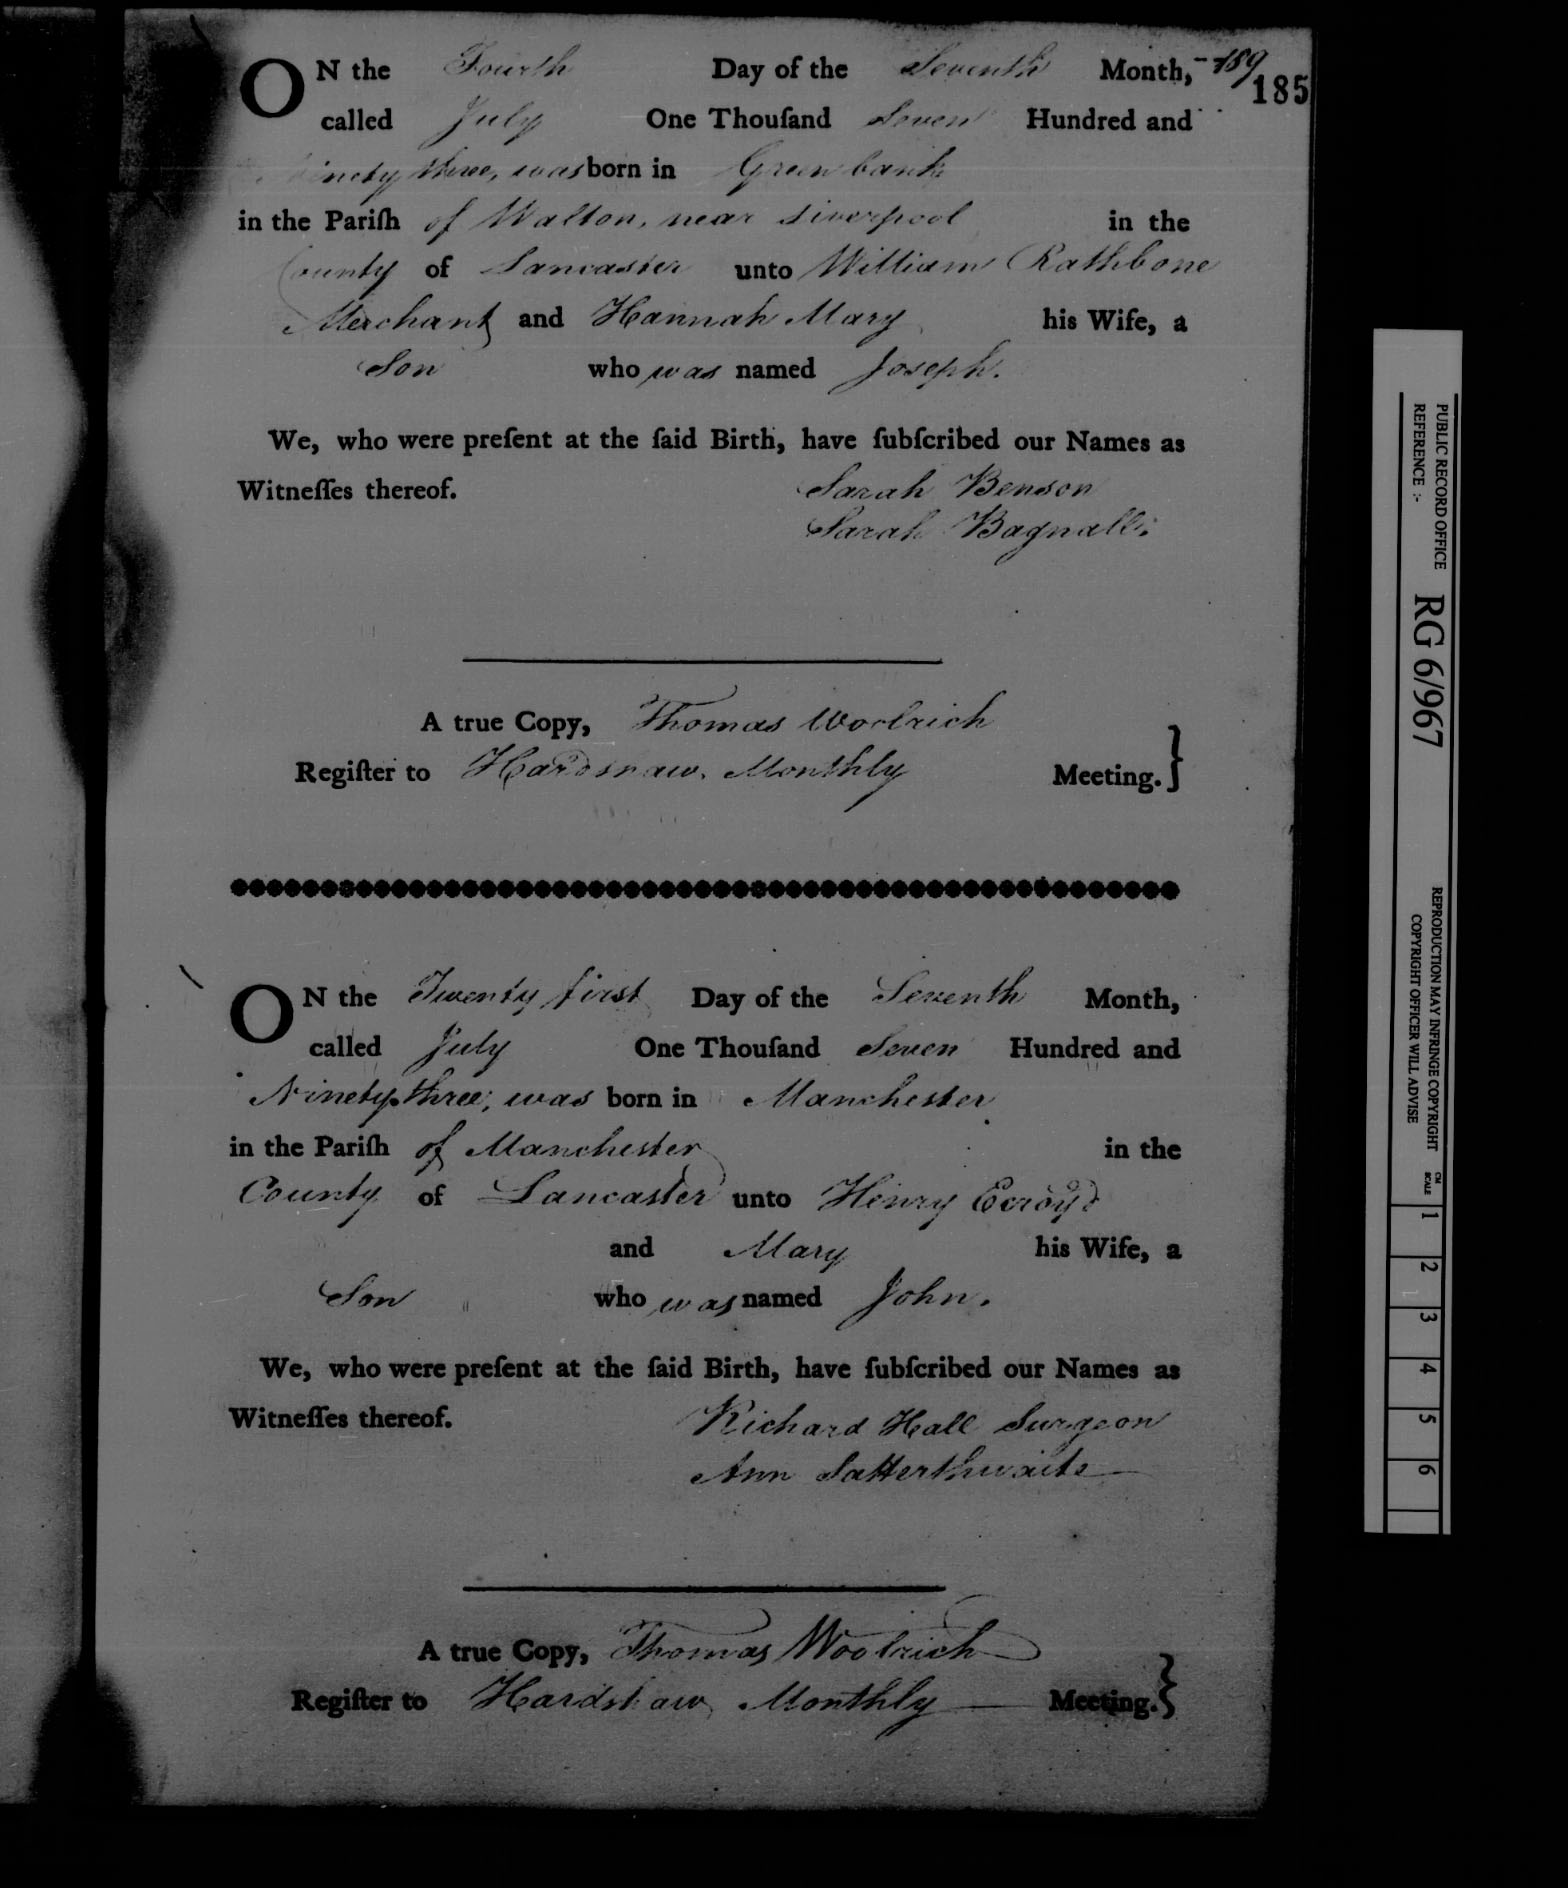 ON the Fourth Day of the Seventh Month, - 189
185
called July One Thouſand Seven Hundred and
Ninety three, was born in Greenbank
in the Pariſh of Walton, near Liverpool in the
County of Lancaster unto William Rathbone
Merchant and Hannah Mary his Wife, a
Son who was named Joseph.
We, who were preſent at the ſaid Birth, have ſubſcribed our Names as
Witneſſes thereof.
Sarah Benson
Sarah Bagnall.
A true Copy, Thomas Woolrich
Regiſter to Hardshaw Monthly Meeting. }
ON the Twenty first Day of the Seventh Month,
called July One Thouſand Seven Hundred and
Ninety three, was born in Manchester
in the Pariſh of Manchester in the
County of Lancaster unto Henry Ecroyd
and Mary his Wife, a
Son who was named John.
We, who were preſent at the ſaid Birth, have ſubſcribed our Names as
Witneſſes thereof.
Richard Hall Surgeon
Ann Satterthwaite
A true Copy, Thomas Woolrich
Regiſter to Hardshaw Monthly Meeting. }
PUBLIC RECORD OFFICE
REFERENCE :-
RG 6/967
REPRODUCTION MAY INFRINGE COPYRIGHT
COPYRIGHT OFFICER WILL ADVISE
CM
SCALE
1 2 3 4 5 6